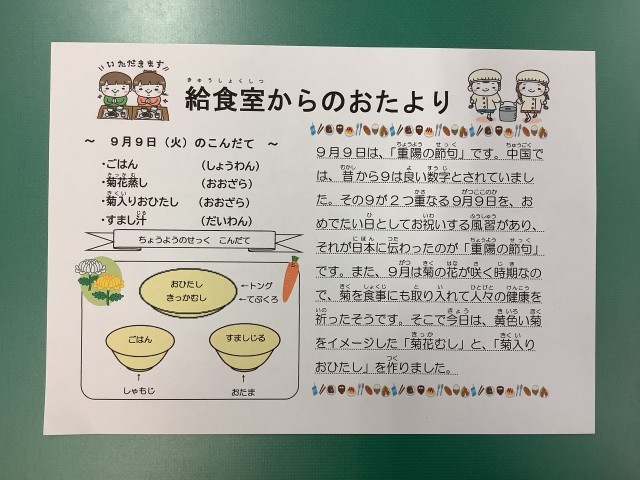 いただきます
給食室からのおたより
～ 9月9日（火）のこんだて ～
・ごはん （しょうわん）
・菊花蒸し （おおざら）
・菊入りおひたし （おおざら）
・すまし汁 （だいわん）
ちょうようのせっく こんだて
おひたし
きっかむし
←トング
←てぶくろ
ごはん
すましじる
↑
しゃもじ
↑
おたま
9月9日は、「重陽の節句」です。中国で
は、昔から9は良い数字とされていまし
た。その9が2つ重なる9月9日を、お
めでたい日としてお祝いする風習があり、
それが日本に伝わったのが「重陽の節句」
です。また、9月は菊の花が咲く時期なの
で、菊を食事にも取り入れて人々の健康を
祈ったそうです。そこで今日は、黄色い菊
をイメージした「菊花むし」と、「菊入り
おひたし」を作りました。